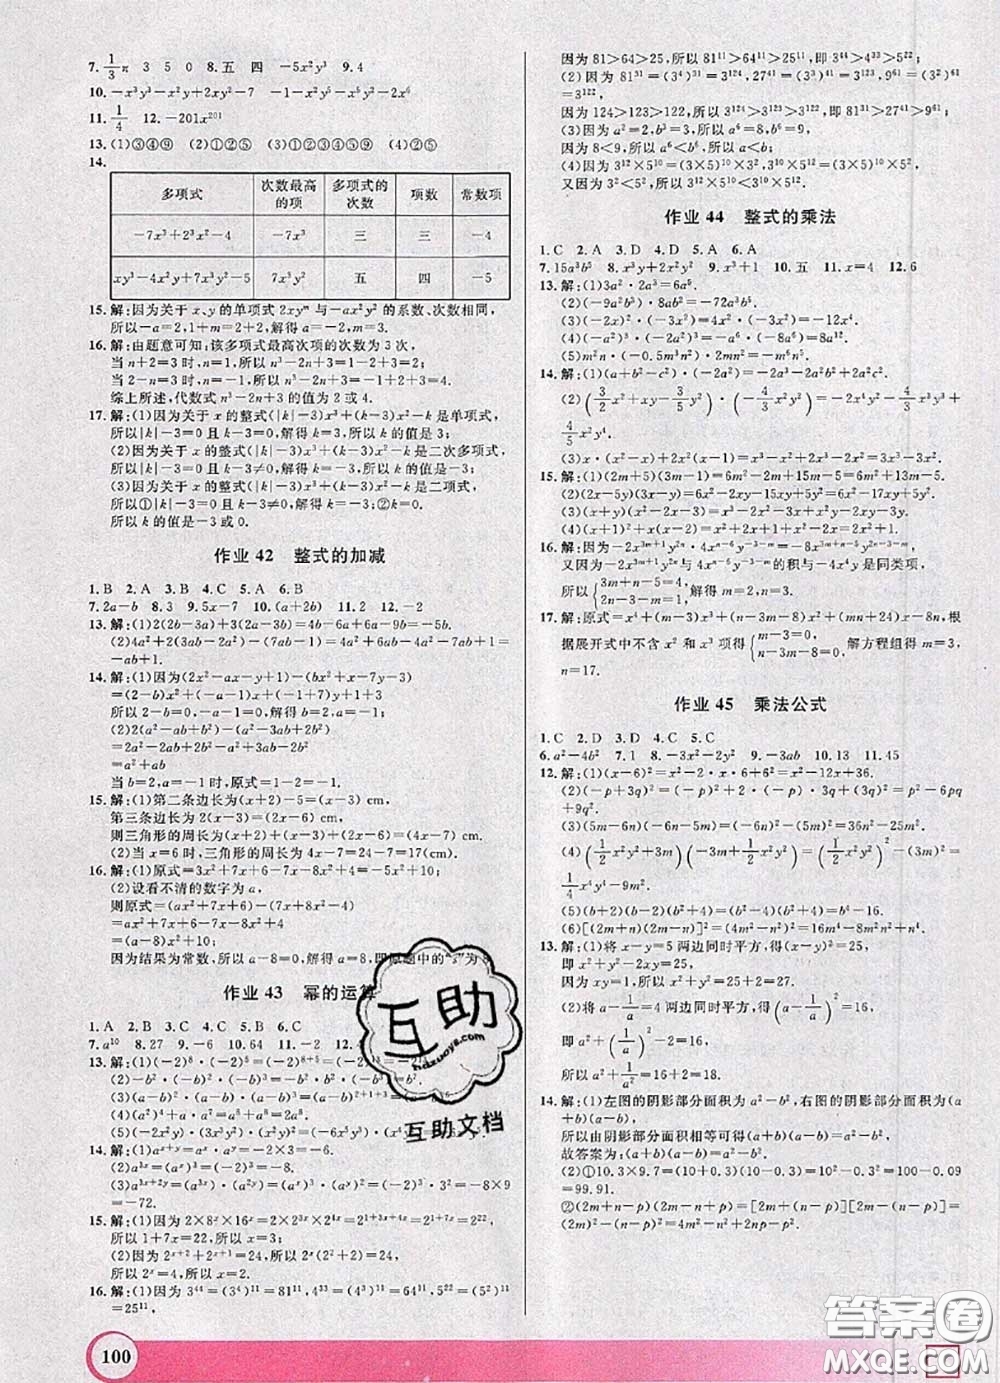 7. 1/3 π 3 5 0 8.五 四 −5x²y³ 9.4
10. −x³y³−x²y+2xy²−7 −1−x²y²−2x⁶
11. 1/4 12.−201x²⁰¹
13.(1)③④⑨ (2)①②⑤ (3)①②③④⑤⑨ (4)②⑤
14.
多项式 次数最高的项 多项式的次数 项数 常数项
−7x³+2³x²−4 −7x³ 三 三 −4
xy³−4x²y+7x³y²−5 7x³y² 五 四 −5
15.解:因为关于 x、y 的单项式 2xyᵐ 与−ax²y² 的系数、次数相同,
所以−a=2,1+m=2+2,解得 a=−2,m=3.
16.解:由题意可知:该多项式最高次项的次数为 3 次,
当 n+2=3 时,n=1,所以 n³−2n+3=1−2+3=2;
当 2−n=3 时,n=−1,所以 n³−2n+3=−1+2+3=4;
综上所述,代数式 n³−2n+3 的值为 2 或 4.
17.解:(1)因为关于 x 的整式(|k|−3)x³+(k−3)x²−k 是单项式,
所以|k|−3=0 且 k−3=0,解得 k=3,所以 k 的值是 3;
(2)因为关于 x 的整式(|k|−3)x³+(k−3)x²−k 是二次多项式,
所以|k|−3=0 且 k−3≠0,解得 k=−3,所以 k 的值是−3;
(3)因为关于 x 的整式(|k|−3)x³+(k−3)x²−k 是二项式,
所以①|k|−3=0 且 k−3≠0,解得 k=−3;②k=0.
所以 k 的值是−3 或 0.
作业 42 整式的加减
1.B 2.A 3.B 4.C 5.A 6.B
7.2a−b 8.3 9.5x−7 10.(a+2b) 11.2 12.−2
13.解:(1)2(2b−3a)+3(2a−3b)=4b−6a+6a−9b=−5b.
(2)4a²+2(3ab−2a²)−(7ab−1)=4a²+6ab−4a²−7ab+1=−ab+1.
14.解:(1)因为(2x²−ax−y+1)−(bx²+x−7y−3)
=(2−b)x²+(−a−1)x+6y+4,
所以 2−b=0,−a−1=0,解得 b=2,a=−1.
(2)2(a²−ab+b²)−(2a²−3ab−b²)
=2a²−2ab+2b²−2a²+3ab+b²
=ab+3b²
当 b=2,a=−1 时,原式=−2+12=10.
15.解:(1)第二条边长为(x+2)−5=(x−3) cm,
第三条边长为 2(x−3)=(2x−6) cm,
则三角形的周长为(x+2)+(x−3)+(2x−6)=(4x−7) cm.
(2)当 x=6 时,三角形的周长为 4x−7=24−7=17(cm).
16.解:(1)原式=3x²+7x+6−7x−8x²+4=−5x²+10.
(2)设看不清的数字为 a,
则原式=(ax²+7x+6)−(7x+8x²−4)
=ax²+7x+6−7x−8x²+4
=(a−8)x²+10;
因为结果为常数,所以 a−8=0,解得 a=8,即原题中的“”为 8
作业 43 幂的运算
1.A 2.B 3.C 4.C 5.B 6.C
7.a¹⁰ 8.27 9.−6 10.64 11.−2 12.
13.解:(1)(−2)⁸·(−2)⁵=(−2)⁸⁺⁵=(−2)¹³
(2)−b²·(−b)²·(−b³)=−b²·b²·
(3)(−a)·(−a)²·(−a)⁶=(−a)
(4)(x²)³·(x³)²=x⁶·x⁶=x¹²
(5)(−2x²y)³−(−2x³y)²·(−x²y)=(−6x⁵y³)·(−x²y)
14.解:(1)aˣ⁺ʸ=aˣ·aʸ=−2×3=−6.
(2)a³ˣ=(aˣ)³=(−2)³=−8.
(3)a³ˣ⁺²ʸ=a³ˣ·a²ʸ=(aˣ)³·(aʸ)²=(−2)³·3²=−8×9=−72.
15.解:(1)因为 2×8ˣ×16ˣ=2×2³ˣ×2⁴ˣ=2¹⁺³ˣ⁺⁴ˣ=2¹⁺⁷ˣ=2²²,
所以 1+7x=22,所以 x=3.
(2)因为 2ˣ⁺²+2ˣ⁺¹=24,所以 2ˣ(2²+2)=24,
所以 2ˣ=4,所以 x=2.
16.解:(1)因为 3⁴⁴=(3⁴)¹¹=81¹¹,4³³=(4³)¹¹=64¹¹,5²²=(5²)¹¹
=25¹¹,
因为 81>64>25,所以 81¹¹>64¹¹>25¹¹,即 3⁴⁴>4³³>5²²
(2)因为 81³¹=(3⁴)³¹=3¹²⁴,27⁴¹=(3³)⁴¹=3¹²³,9⁶¹=(3²)⁶¹
=3¹²²,
因为 124>123>122,所以 3¹²⁴>3¹²³>3¹²²,即 81³¹>27⁴¹>9⁶¹
(3)因为 a²=2,b³=3,所以 a⁶=8,b⁶=9,
因为 8<9,所以 a⁶<b⁶,所以 a<b;
(4)因为 3¹²×5¹⁰=(3×5)¹⁰×3²,3¹⁰×5¹²=(3×5)¹⁰×5²,
又因为 3²<5²,所以 3¹²×5¹⁰<3¹⁰×5¹².
作业 44 整式的乘法
1.C 2.A 3.D 4.D 5.A 6.A
7.15a³b⁵ 8.x³y+xy 9.x³+1 10.五 11.x=4 12.6
13.解:(1)3a²·2a³=6a⁵.
(2)(−9a²b³)·8ab²=−72a³b⁵.
(3)(−3x²)·2x³=−27x⁶·2x³
(4)(−a²)³·(−a³)²=−a⁶·a⁶=−a¹².
(5)(m²n)²·(−0.5m)·2mn²=
14.解:(1)(a²+b²−c²)·(−2a²)=−2a⁴−2a²b²+2a²c².
(2)(3/2 x²y−3/5 xy²)·(−4/3 x²y²)=−2x⁴y³+
4/5 x³y⁴.
(3)x·(x²−x)+2x²(x−1)=x³−x²+2x³−2x²=3x³−3x².
15.解:(1)(2m−1)(3m−5)=6m²−10m−3m+5=6m²−13m+5.
(2)(2x−5y)(3x−y)=6x²−2xy−15xy+5y²=6x²−17xy+5y².
(3)(x+y)(x²−2x−3)=x³−2x²−3x+x²y−2xy−3y.
(4)(x+1)(x²−x+1)=x³−x²+x+x²−x+1=x³+1.
16.解:因为−2x³ᵐ⁺¹y²ⁿ·4xⁿ⁻⁶y⁻³⁻ᵐ=
又因为−2x³ᵐ⁺¹y²ⁿ 与 4xⁿ⁻⁶y⁻³⁻ᵐ 的积与−4x⁴y 是同类项,
所以 解得 m=2,n=3.
17.解:原式=x⁴+(m−3)x³+(n−3m−8)x²+(mn+24)x−8n,根
据展开式中不含 x² 和 x³ 项得{m−3=0, n−3m−8=0. 解方程组得 m=3,
n=17.
作业 45 乘法公式
1.C 2.D 3.D 4.C 5.C
6.a²−4b² 7.1 8.−3x²−2y² 9.−3ab 10.13 11.45
12.解:(1)(x−6)²=x²−2·x·6+6²=x²−12x+36.
(2)(−p+3q)²=(−p)²+2·(−p)·3q+(3q)²=p²−6pq
+9q².
(3)(5m−6n)(5m+6n)=(5m)²−(6n)²=25m²−36n².
(4)(1/2 x²y²+3m)(−3m+1/2 x²y²)=(1/2 x²y²)²−(3m)²=
1/4 x⁴y⁴−9m².
(5)(b+2)(b−2)(b²+4)=(b²−4)(b²+4)=b⁴−16.
(6)[(2m+n)(2m−n)]²=(4m²−n²)²=16m⁴−8m²n²+n⁴.
13.解:(1)将 x−y=5 两边同时平方,得(x−y)²=25,
即 x²+y²−2xy=25,
因为
(2)将 a−1/a=4 两边同时平方,得(a−1/a)²=16,
即 a²+(1/a)²−2=16,
所以 a²+1/a²=16+2=18.
14.解:(1)左图的阴影部分面积为 a²−b²,右图的阴影部分面积为(a
+b)(a−b),
所以由阴影部分面积相等可得(a+b)(a−b)=a²−b².
故答案为:(a+b)(a−b)=a²−b².
(2)①10.3×9.7=(10+0.3)(10−0.3)=10²−0.3²=100−0.09
=99.91.
②(2m+n−p)(2m−n+p)=[2m+(n−p)][2m−(n−p)]=
(2m)²−(n−p)²=4m²−n²+2np−p².
互助
hdzuoye.com
互助文档
100
答案圈
MXQE.COM